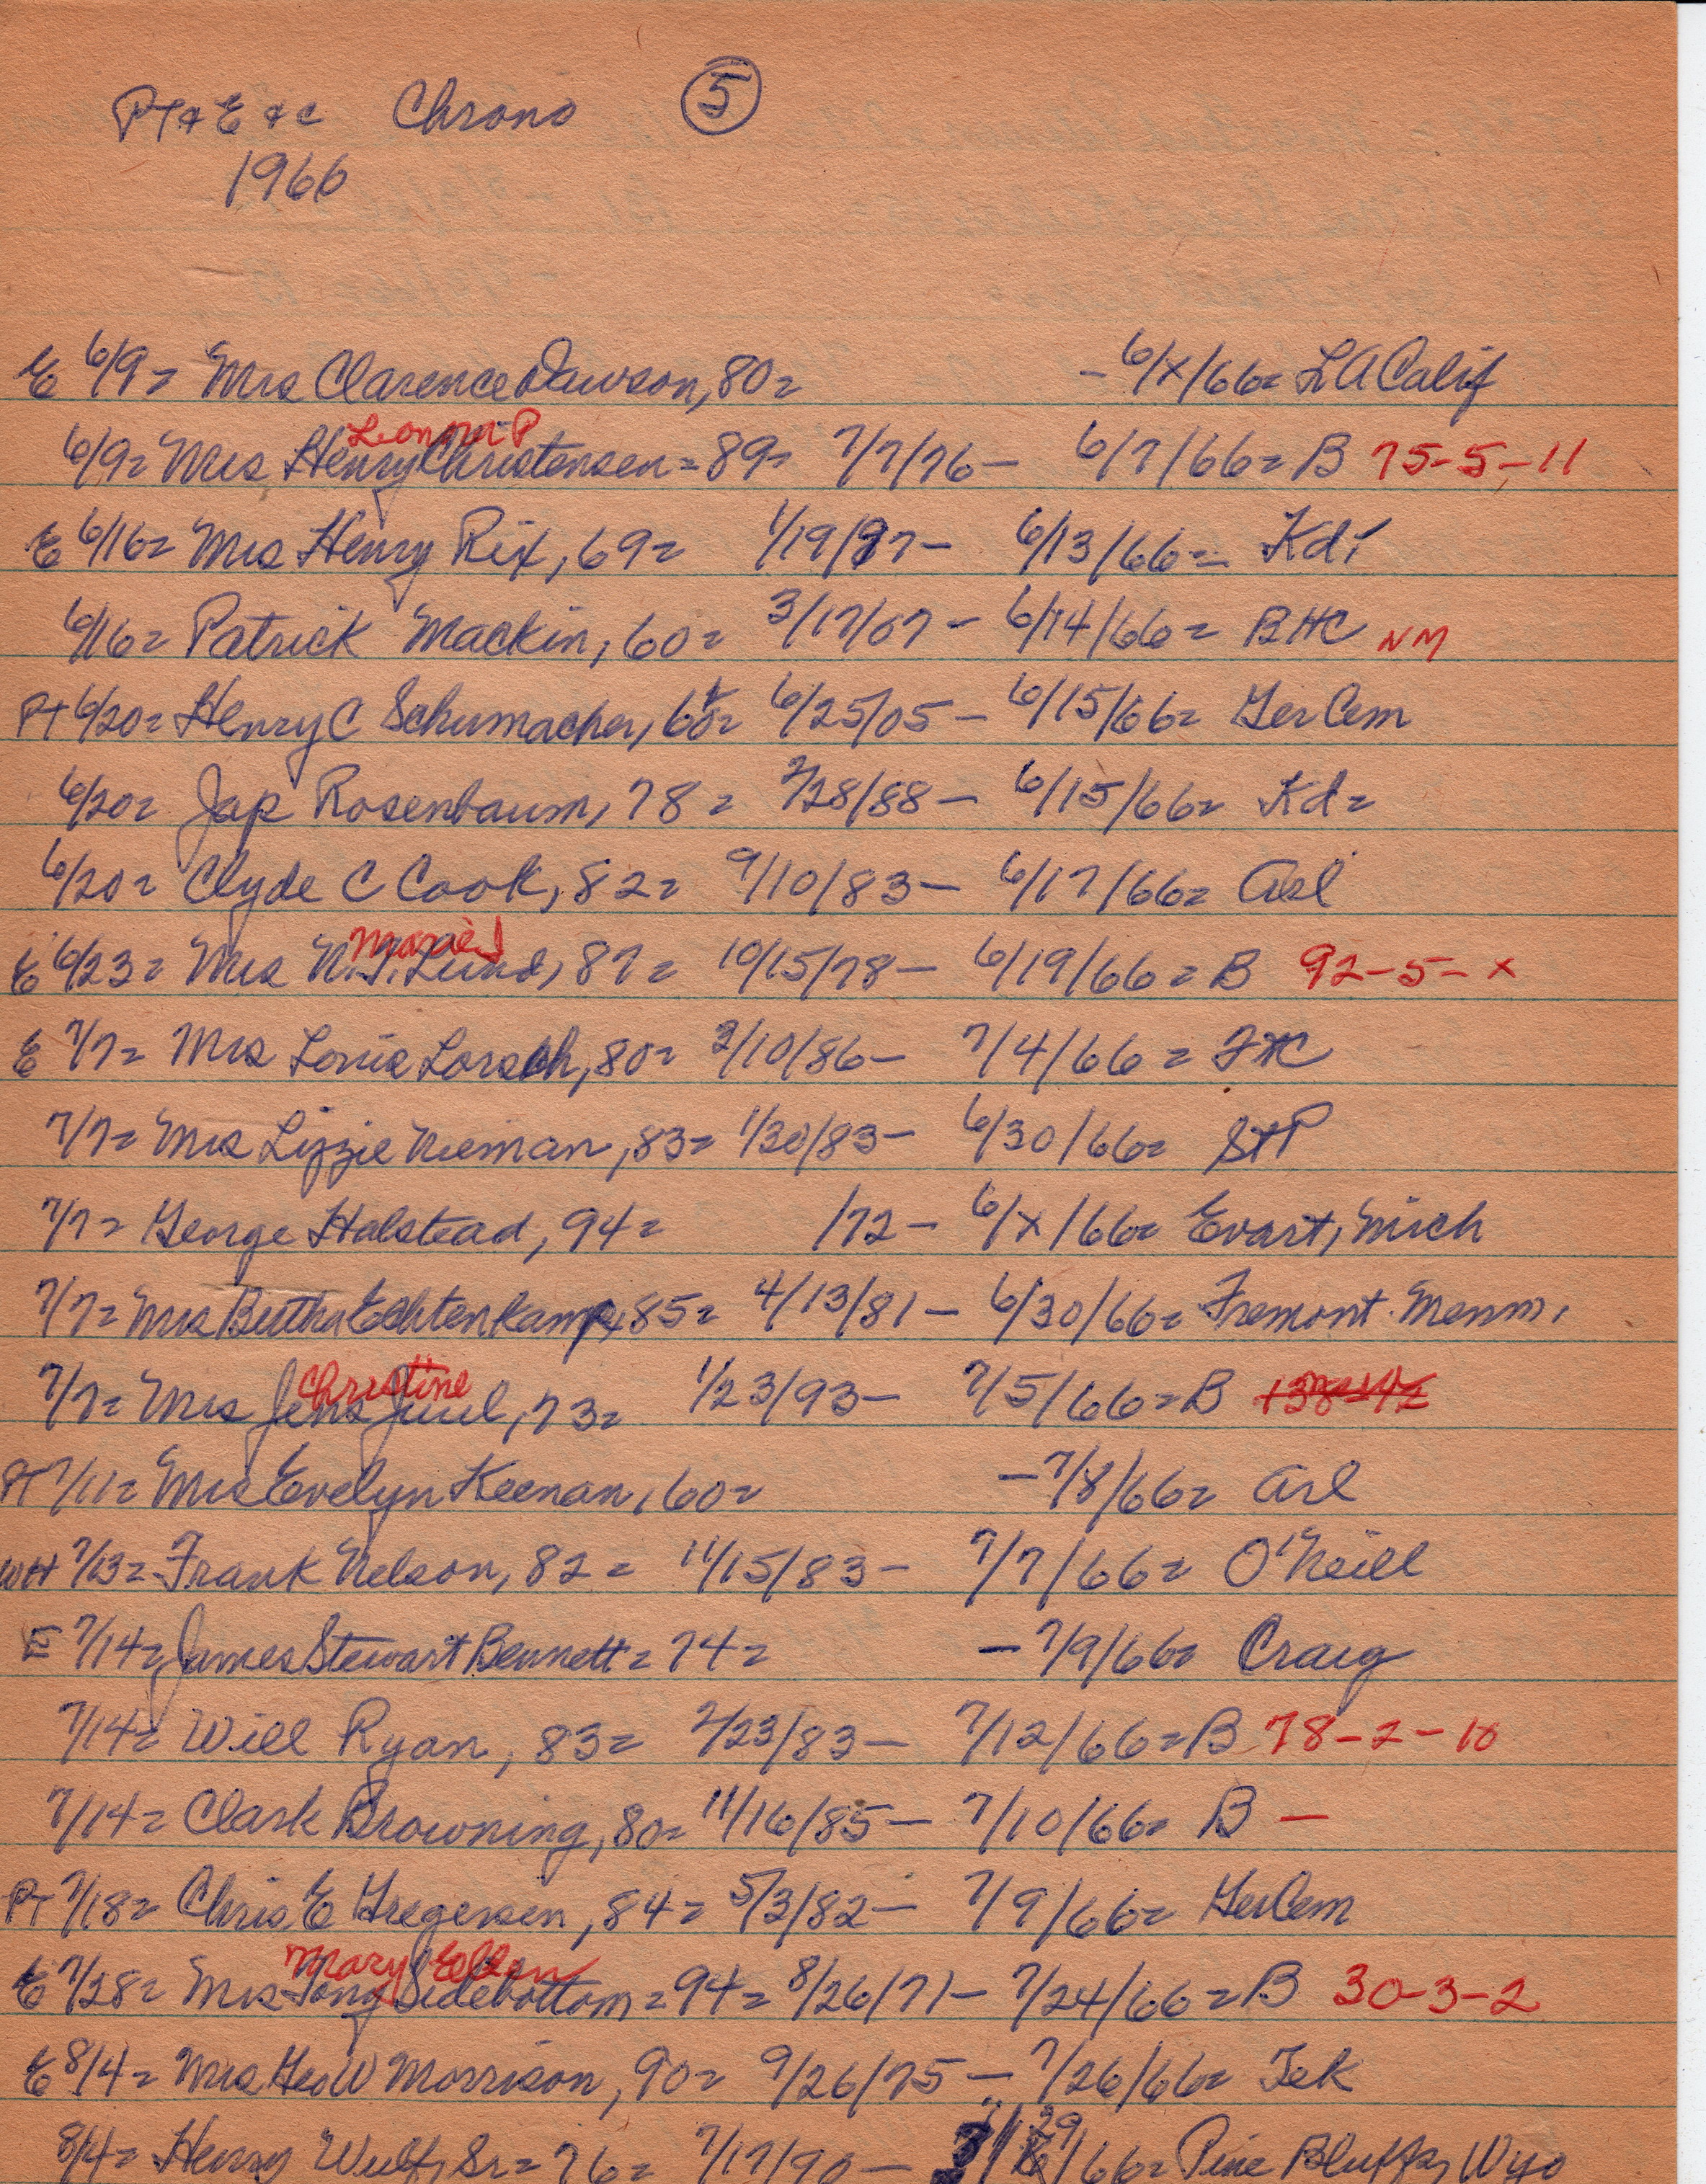 PT & E & c Chrono 5
1966
E 6/9= Mrs Clarence Dawson, 80= - 6/x/66= LA Calif
Leonora P
6/9= Mrs Henry Christensen = 89= 7/7/76 - 6/7/66= B 75-5-11
E 6/16= Mrs Henry Rix, 69= 1/19/97 - 6/13/66= Kd
6/16= Patrick Mackin, 60= 3/17/07 - 6/14/66= BHC NM
PT 6/20= Henry C Schumacher, 60= 6/25/05 - 6/15/66= Ger Cem
6/20= Jap Rosenbaum, 78= 2/28/88 - 6/15/66= Kd=
6/20= Clyde C Cook, 82= 9/10/83 - 6/17/66= Arl
Marie
E 6/23= Mrs N.J. Lund, 87= 10/15/78 - 6/19/66= B 92-5-x
E 7/7= Mrs Louis Lorsch, 80= 2/10/86 - 7/4/66=
7/7= Mrs Lizzie Nieman, 83= 1/30/83 - 6/30/66= StP
7/7= George Halstead, 94= /72 - 6/x/66= Evart, Mich
7/7= Mrs Bertha Echtenkamp, 85= 4/13/81 - 6/30/66= Fremont. Memm.
Christine
7/7= Mrs Jens Juul, 73= 1/23/93 - 7/5/66= B
PT 7/11= Mrs Evelyn Keenan, 60= - 7/8/66= Arl
WH 7/13= Frank Nelson, 82= 11/15/83 - 7/7/66= O'Neill
E 7/14= James Stewart Bennett = 74= - 7/9/66= Craig
7/14= Will Ryan, 83= 2/23/83 - 7/12/66= B 78-2-10
7/14= Clark Browning, 80= 11/16/85 - 7/10/66= B -
PT 7/18= Chris E Gregersen, 84= 5/3/82 - 7/9/66= Ger Cem
Mary Ellen
E 7/28= Mrs Tony Sidebottom = 94= 8/26/71 - 7/24/66= B 30-3-2
E 8/4= Mrs Geo W Morrison, 90= 9/26/75 - 7/26/66= Tek
8/4= Henry Wulf, Sr= 76= 7/17/90 - 29/66= Pine Bluffs, Wyo